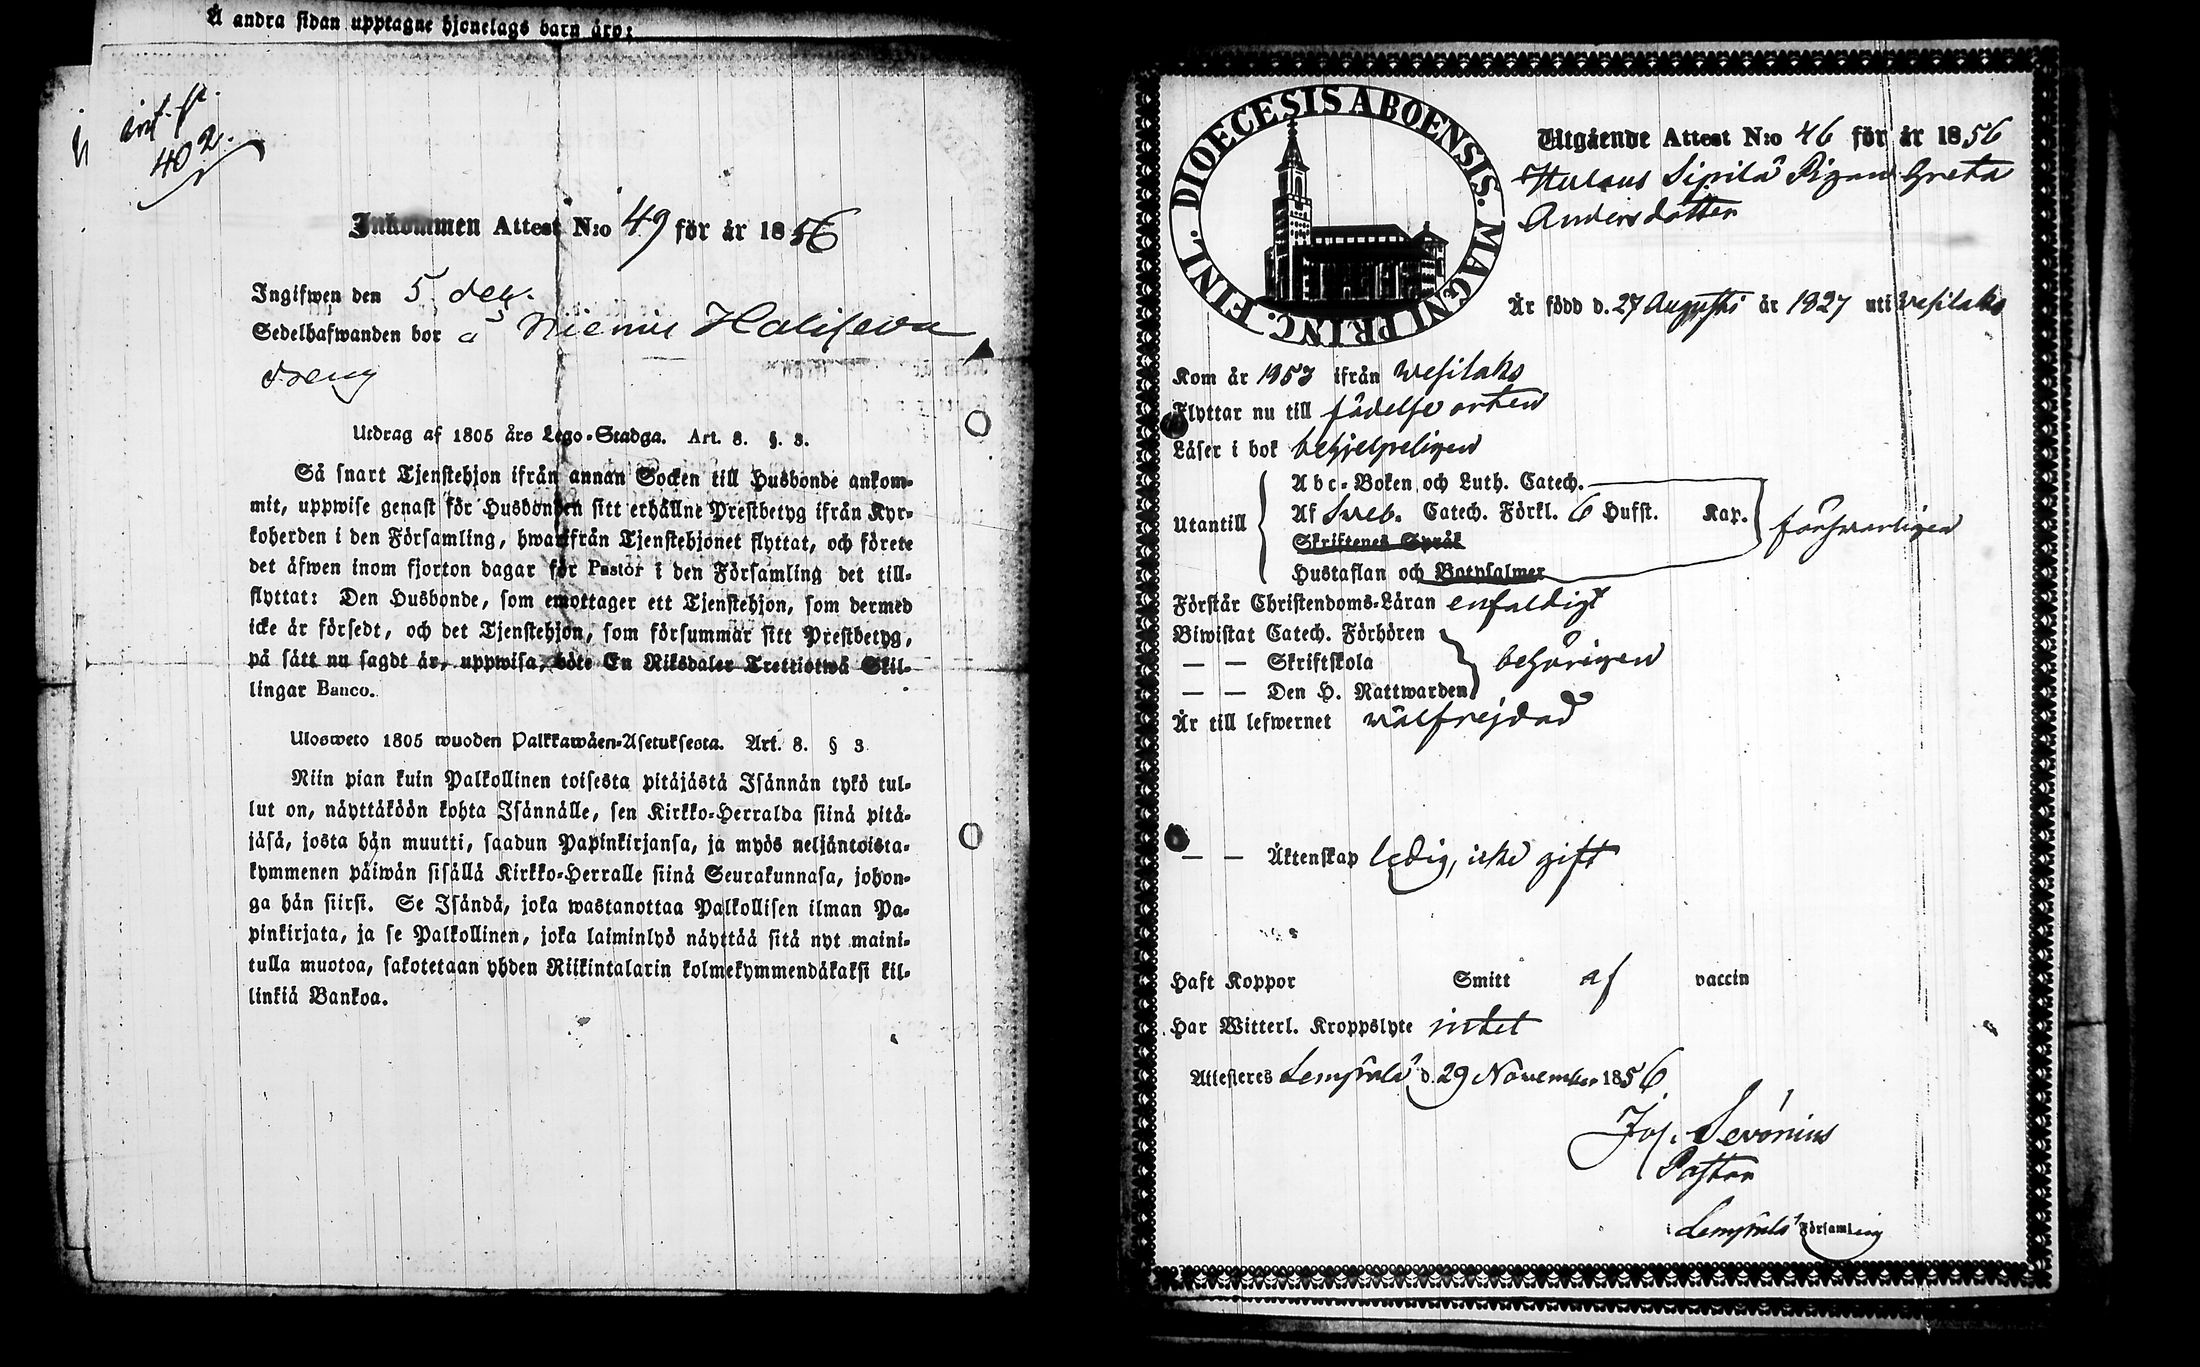 Å andra sidan upptagne hjonelags barn äro:
inf. p.
402.
Inkommen Attest N:o 49 för år 1856
Ingifwen den 5 dec.
Sedelhafwanden bor å Niemis
dreng
Utdrag af 1805 års Lego-Stadga. Art. 8. §. 3.
Så snart Tjenstehjon ifrån annan Socken till Husbonde ankom-
mit, uppwise genast för Husbonden sitt erhållne Prestbetyg ifrån Kyr-
koherden i den Församling, hwarifrån Tjenstehjonet flyttat, och förete
det äfwen inom fjorton dagar för Pastor i den Församling det till-
flyttat: Den Husbonde, som emottager ett Tjenstehjon, som dermed
icke är försedt, och det Tjenstehjon, som försummar sitt Prestbetyg,
på sätt nu sagdt är, uppwisa, böte En Riksdaler Trettiotwå Skil-
lingar Banco.
Ulosweto 1805 wuoden Palkkawäen-Asetuksesta. Art. 8. § 3
Niin pian kuin Palkollinen toisesta pitäjästä Isännän tykö tul-
lut on, näyttäköön kohta Isännälle, sen Kirkko-Herralda siinä pitä-
jäsä, josta hän muutti, saadun Papinkirjansa, ja myös neljäntoista-
kymmenen päiwän sisällä Kirkko-Herralle siinä Seurakunnasa, johon-
ga hän siirsi. Se Isändä, joka wastanottaa Palkollisen ilman Pa-
pinkirjata, ja se Palkollinen, joka laiminlyö näyttää sitä nyt maini-
tulla muotoa, sakotetaan yhden Riikintalarin kolmekymmendäkaksi kil-
linkiä Bankoa.
DIOECESIS ABOENSIS. MAGNI PRINC. FINL.
Utgående Attest N:o 46 för år 1856
Sipilä Pigan Greta
Andersdotter
Är född d. 27 Augusti år 1827 uti Wesilaks
Kom år 1853 ifrån Wesilaks
Flyttar nu till födelse orten
Läser i bok behjelpeligen
Abc-Boken och Luth. Catech.
Utantill Af Sveb. Catech. Förkl. 6 Hufst. Kap. försvarligen
Skriftenes Språk
Hustaflan och Botpsalmer
Förstår Christendoms-Läran enfaldigt
Biwistat Catech. Förhören
— — Skriftskola behörigen
— — Den H. Nattwarden
Är till lefwernet wälfrejdad
— — Äktenskap ledig, icke gift
Haft Koppor Smitt af vaccin
Har Witterl. Kroppslyte intet
Attesteres Lempälä d. 29 November 1856
Jos. Sevonius
Pastor
i Lempälä Församling